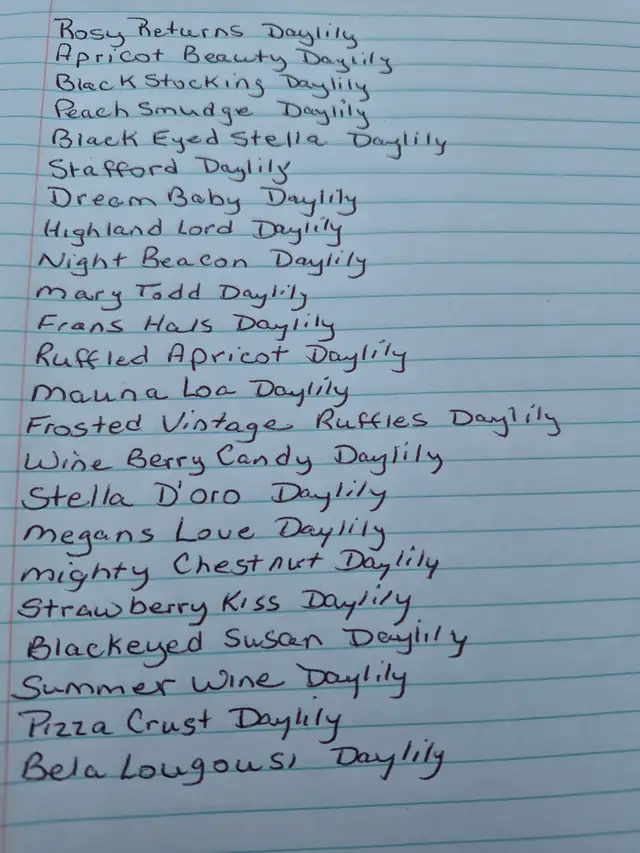 Rosy Returns Daylily
Apricot Beauty Daylily
Black Stocking Daylily
Peach Smudge Daylily
Black Eyed Stella Daylily
Stafford Daylily
Dream Baby Daylily
Highland Lord Daylily
Night Beacon Daylily
Mary Todd Daylily
Frans Hals Daylily
Ruffled Apricot Daylily
Mauna Loa Daylily
Frosted Vintage Ruffles Daylily
Wine Berry Candy Daylily
Stella D'oro Daylily
Megans Love Daylily
Mighty Chestnut Daylily
Strawberry Kiss Daylily
Blackeyed Susan Daylily
Summer Wine Daylily
Pizza Crust Daylily
Bela Lougousi Daylily